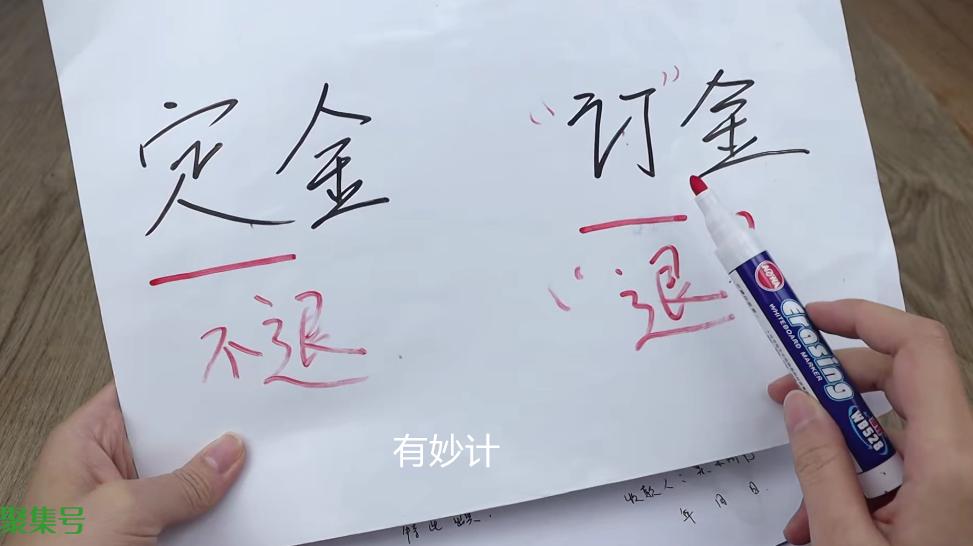 定金 “订”金
不退 “退
有妙计
聚集号
收款人：
年 月 日
特此
Erasing
WHITEBOARD MARKER
WB528